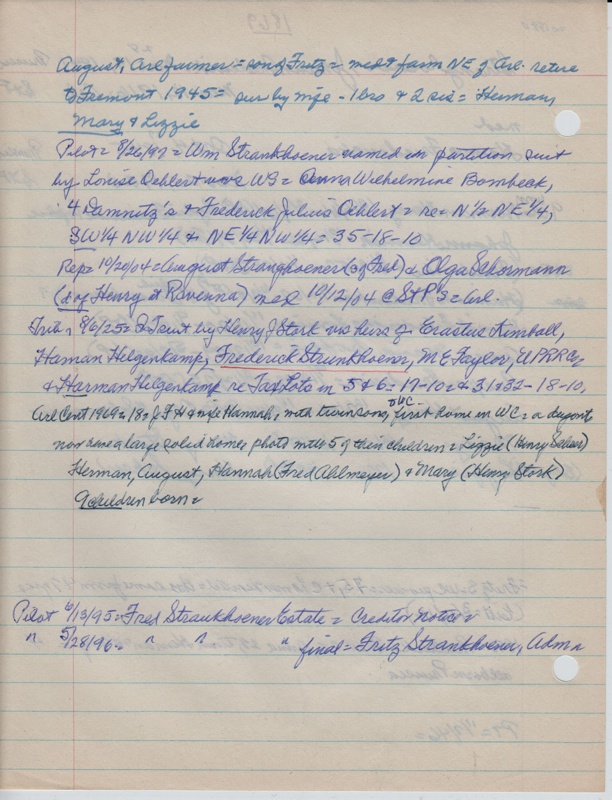 August, Arl farmer = son of Fritz = med & farm NE of Arl - retire
to Fremont 1945 = sur by wife - 1 bro & 2 sis = Herman,
Mary & Lizzie
Pilot = 8/26/97 = Wm Strankhoener named in partition suit
by Louise Oehlert wvs WS = Anna Wilhelmine Bombeck,
4 Damnitz's & Frederick Julius Oehlert & re = N 1/2 NE 1/4,
SW 1/4 NW 1/4 & NE 1/4 NW 1/4 = 35-18-10
Rep = 10/20/04 = August Stranghoener (s of Fred) & Olga Schormann
(d of Henry at Ravenna) med 10/12/04 @ St P's = Arl.
Trib = 8/6/25 = Q Trust by Henry J Stork vs heirs of Erastus Kimball,
Haman Hilgenkamp, Frederick Strunkhoener, M E Taylor, UPRR Co
& Harman Hilgenkamp re Tax Lots in 5 & 6 = 17-10 = & 31 & 32 - 18-10,
Arl Cent 1969 = 18 = J F H & wife Hannah, with twin sons, to WC. first home in WC = a dugout
now have a large solid home, photo with 5 of their children = Lizzie (Henry
Herman, August, Hannah (Fred Ahlmeyer) & Mary (Henry Stork)
9 children born =
Pilot 6/13/95 = Fred Strankhoener Estate = Creditor Notice =
" 5/28/96 = " " " final = Fritz Strankhoener, Adm =